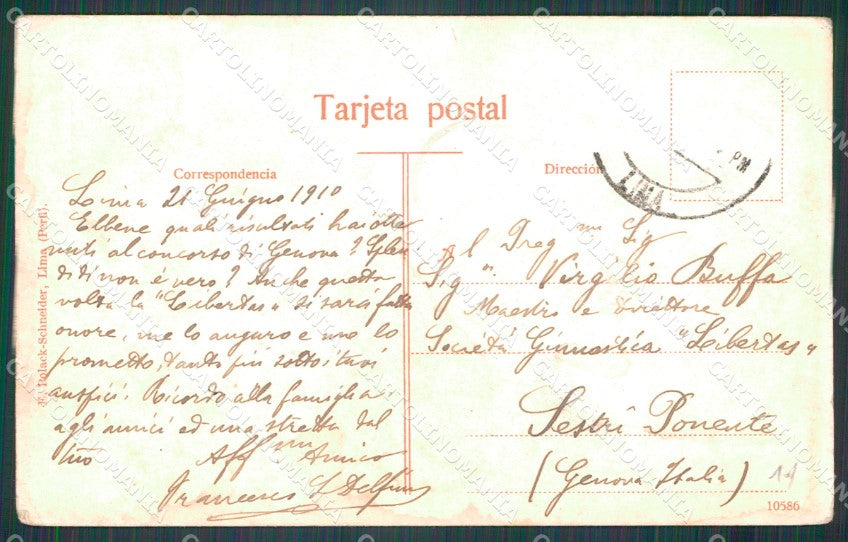 Tarjeta postal
Correspondencia
Dirección
LIMA
PM
Lima 21 Giugno 1910
Ebbene quali risultati hai otte
nuti al concorso di Genova? Splen
diti non è vero? Anche questa
volta la "Libertas" si sarà fatta
onore, me lo auguro e me lo
prometto, tanto più sotto i tuoi
auspici. Ricordo alla famiglia
agli amici ed una stretta dal
tuo Aff mo Amico
Francesco Delfino
Al Preg mo Sig
Sig r. Virgilio Buffa
Maestro e Direttore
Società Ginnastica "Libertas"
Sestri Ponente
(Genova Italia)
10586
Polack-Schneider, Lima (Perú).
CARTOLINOMANIA